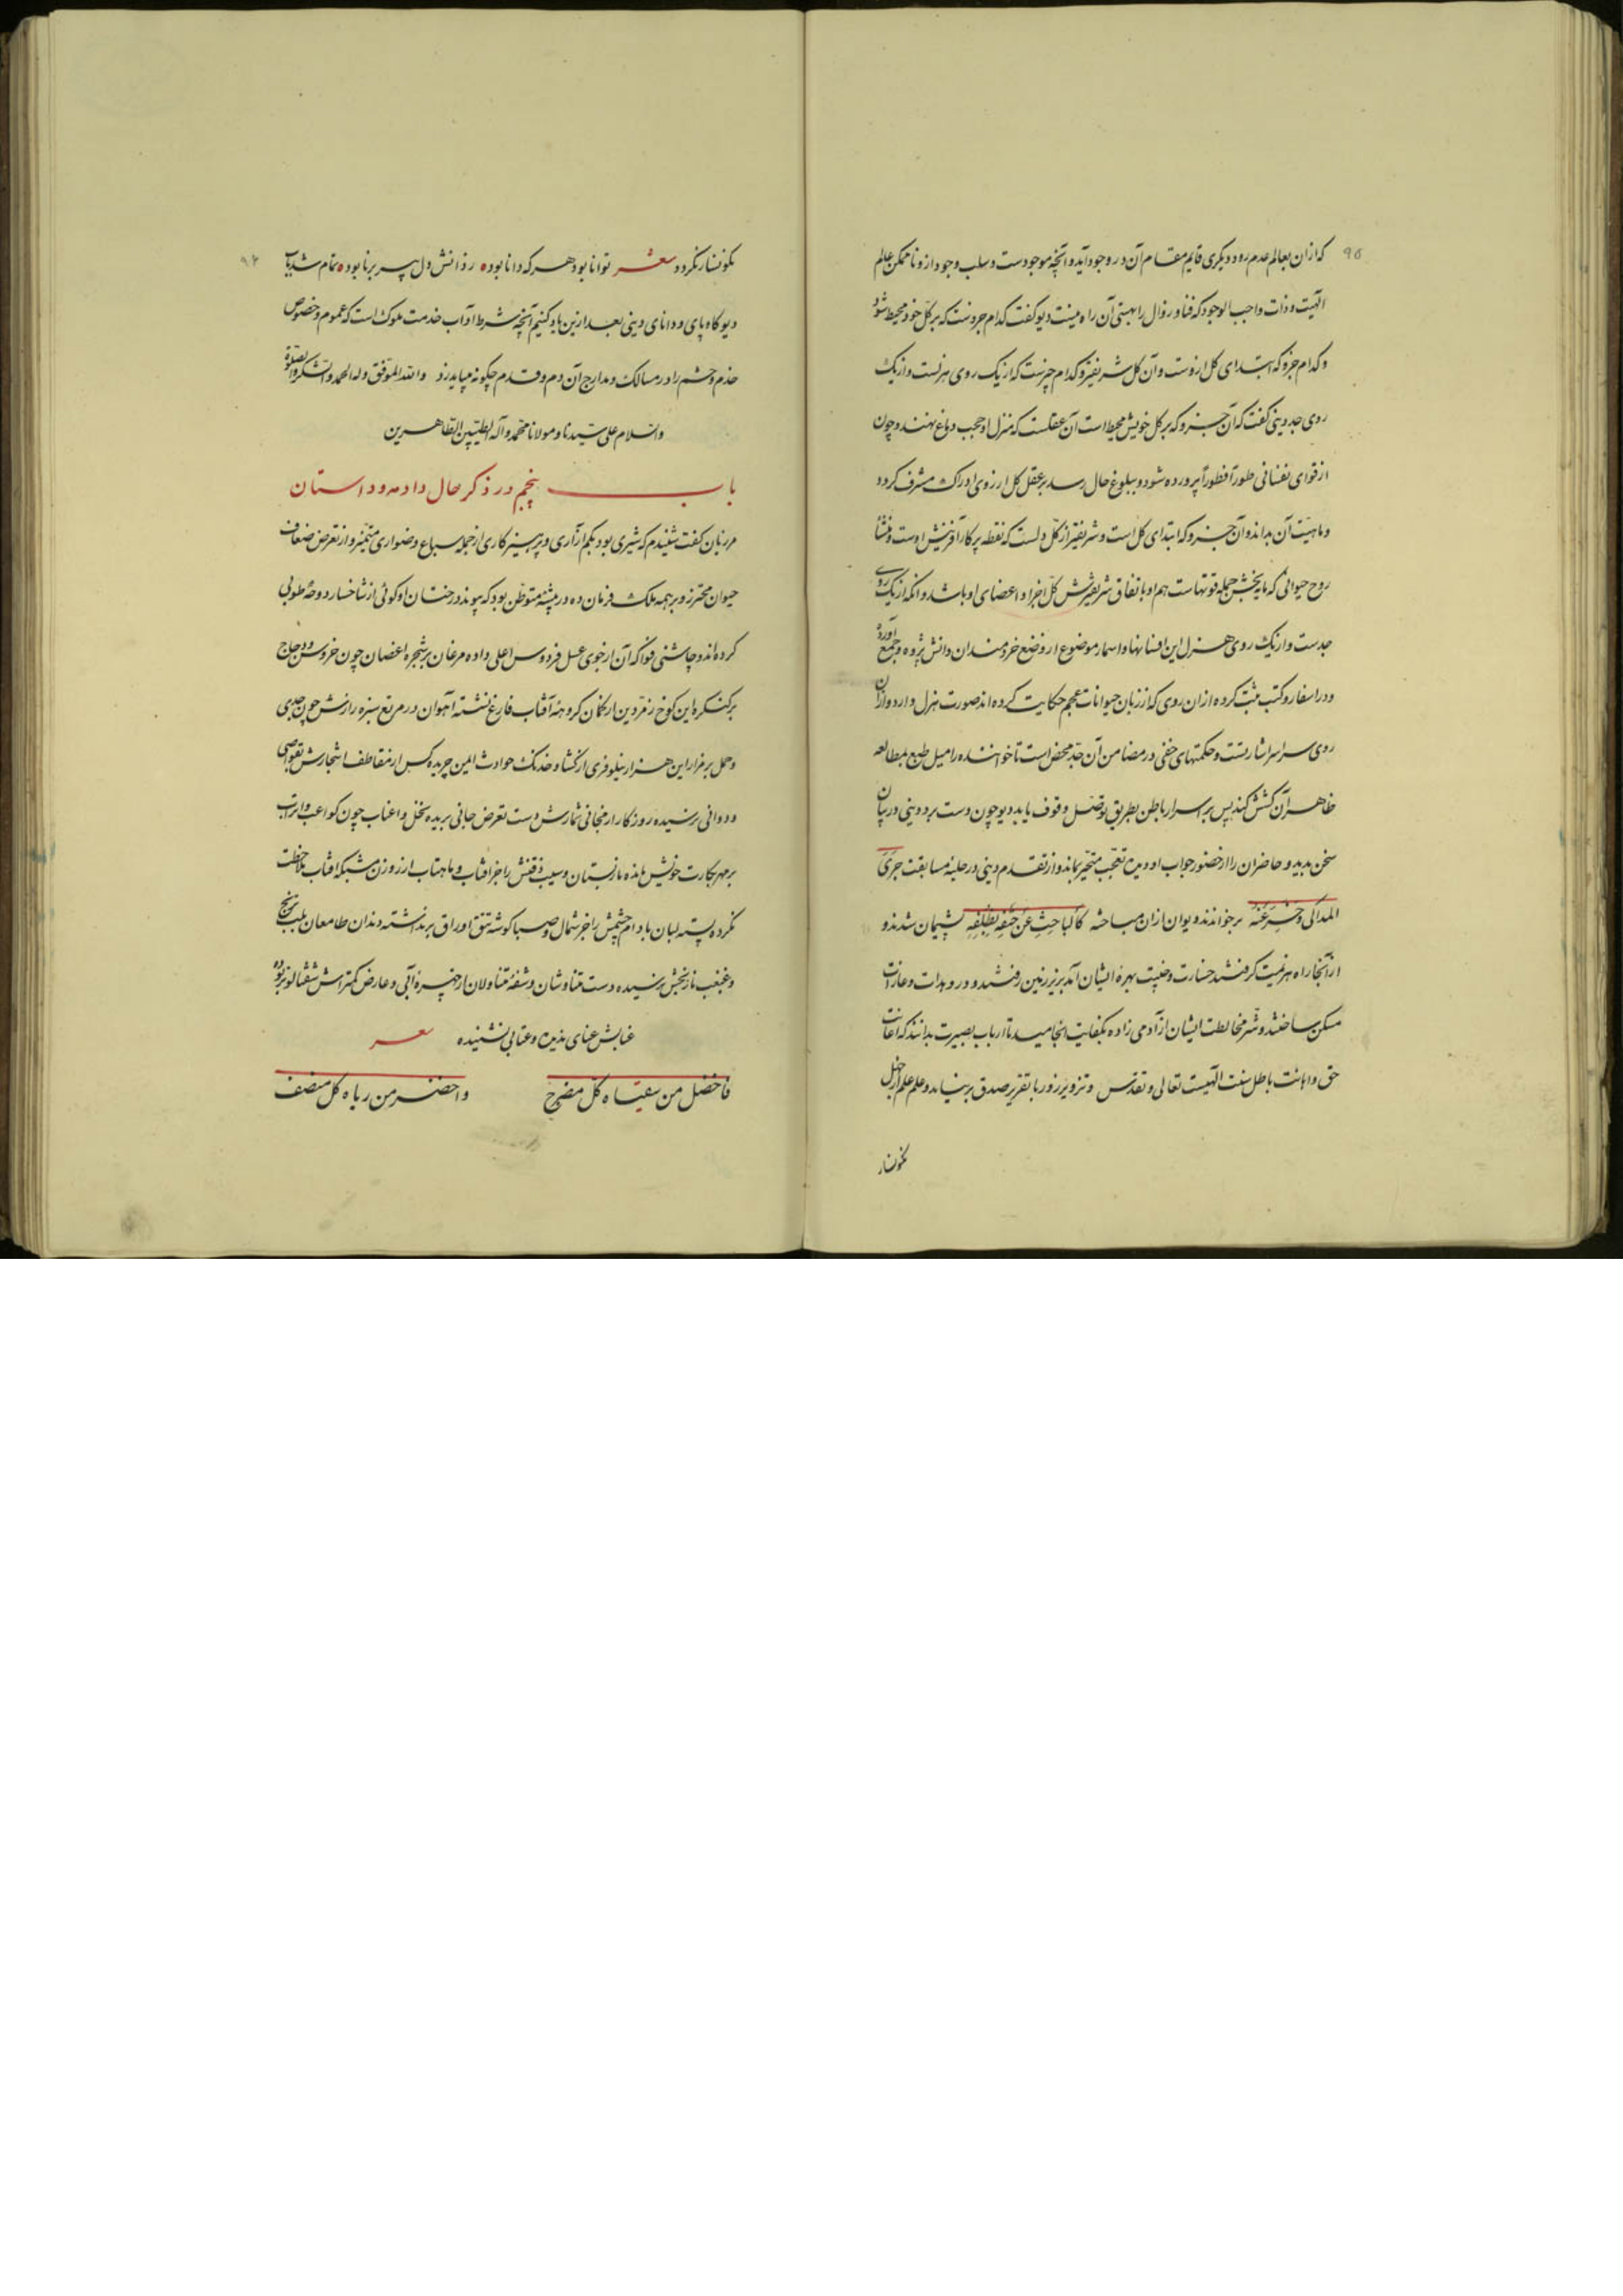 که ازان بعالم عدم رود دیگری قایم مقام آن در وجود آید و آنچه موجودست و سلب وجود ازو ناممکن عالم
الهیت و ذات واجب الوجود که فنا و زوال را بهستی آن راه نیست دیو گفت کدام جزوست که بر کل خود محیط شود
و کدام جزو که ابتدای کل ازوست و آن کل شریفتر و کدام چیزست که از یک روی هزلست و از یک
روی جد دینی گفت که آن جزو که بر کل خویش محیط است آن عقلست که منزل او حجب دماغ نهند و چون
از قوای نفسانی طوراً فطوراً پرورده شود و ببلوغ حال رسد بر عقل کل از روی ادراک مشرف گردد
و ماهیت آن بداند و آن جزو که ابتدای کل است و شریفتر از کل دلست که نقطه پرکار آفرینش اوست و منشأ
روح حیوانی که مایه بخش جمله قوتهاست هم او باتفاق شریفترش کل اجزا و اعضای او باشد و انکه از یک روی
جدست و از یک روی هزل این افسانها و اسمار موضوع از وضع خردمندان دانش پژوه و جمع آورده
و در اسفار و کتب ثبت کرده از ان روی که از زبان حیوانات عجم حکایت کرده‌اند صورت هزل دارد و ازان
روی سراسر اشارتست و حکمتهای خفی در مضامن آن جد محض است تا خواننده را میل طبع بمطالعه
ظاهر آن کشش کند پس بر اسرار باطن بطریق توصل وقوف یابد دیو چون دست برد دینی در بیان
سخن بدید و حاضران را از حضور جواب او دیده تعجب متحیر بماند و از تقدم دینی در حلبه مسابقت جری
المذاکی و حسرعنه برخواندند دیوان ازان مباحثه کالباحث عن حتفه بظلفه پشیمان شدند و
از آنجا راه هزیمت گرفتند خسارت و خیبت بهره ایشان آمد بزیر زمین رفتند و در وهدات و غارات
مسکن ساختند و شر مخالطت ایشان از آدمی زاده بکفایت انجامید تا ارباب بصیرت بدانند که اعانت
حق و اهانت باطل سنت الهیست تعالی و تقدس و تزویر زور با تقریر صدق برنیاید و علم علم از جهل
نگونسار
۹۵
نگونسار نگردد شعر توانا بود هر که دانا بود ه ز دانش دل پیر برنا بود ه تمام شد باب
دیو گاوپای و دانای دینی بعد ازین یاد کنیم آنچه شرط آداب خدمت ملوک است که عموم و خصوص
خدم و حشم را در مسالک و مدارج آن دم و قدم چگونه میباید زد والله الموفق و له الحمد و الشکر و الصلوة
والسلام علی سیدنا و مولانا محمد و آله الطیبین الطاهرین
باب پنجم در ذکر حال دادمه و داستان
مرزبان گفت شنیدم که شیری بود بکم آزاری و پرهیزکاری از جمله سباع و ضواری متمیز و از تعرض ضعاف
حیوان محترز و بر همه ملک فرمان ده در بیشه متوطن بود که پیوند درختان او گوئی از شاخسار دوحه طوبی
کرده‌اند و چاشنی فواکه آن از جوی عسل فردوس اعلی داده مرغان بر شجره اغصان چون خروس و دجاج
بر کنگره این کوخ زمردین از کمان گروهه آفتاب فارغ نشسته آهوان در مرتع سبزه زارش چون جدی
و حمل بر مزار این هزار نیلوفری از گشاد خدنگ حوادث ایمن چریده کس از مقاطف اشجارش بقواصی
و دوانی نرسیده روزگار از مجانی ثمارش دست تعرض جانی بریده نخل و اعناب چون کواعب و اتراب
بر مهر بکارت خویش مانده نارپستان و سیب ذقنش را جز آفتاب و ماهتاب از روزن مشبک افتاب ملاحظت
نکرده پسته لبان بادام چشمش را جز شمال و صبا گوشه تتق اوراق برنداشته دندان طامعان بلب ترنج
و غبغب نارنجش نرسیده دست متناوشان و شفه متناولان از چهره آبی و عارض کمتراش شفتالو نربوده
عنابش عنای ندیده و عتابی نشنیده شعر
فاخضل من سقیاه کل مضرح واخضر من ریاه کل مصفف